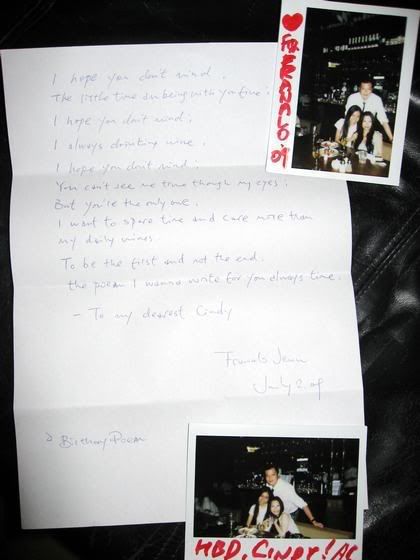 I hope you don't mind.
The little time on being with you fine;
I hope you don't mind;
I always drinking wine.
I hope you don't mind;
You can't see me true though my eyes;
But you're the only one.
I want to spare time and care more than
my daily wines.
To be the first and not the end.
the poem I wanna write for you always time.
- To my dearest Cindy
July 2. 09
Birthday Poem
HBD, CINDY!